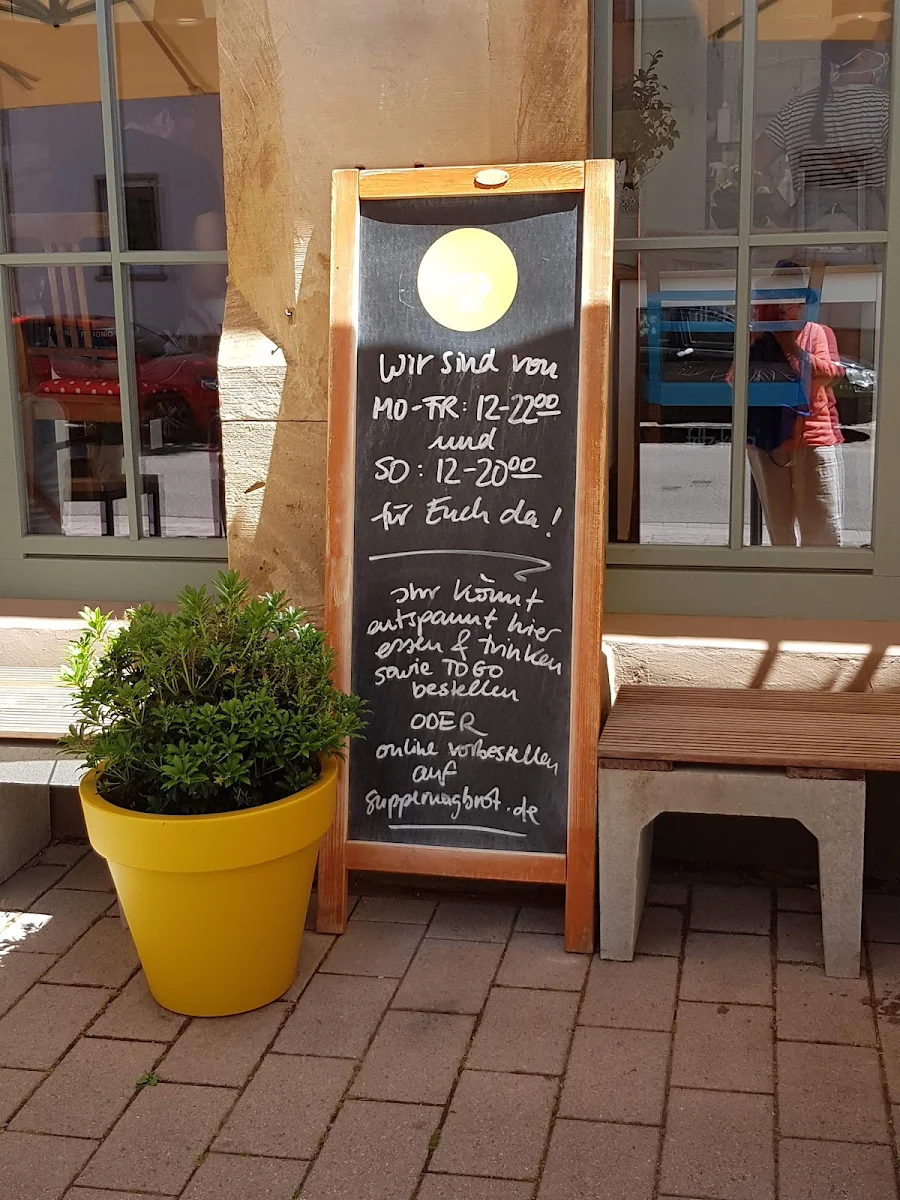 Wir sind von
MO-FR: 12-22⁰⁰
und
SO: 12-20⁰⁰
für Euch da!
Ihr könnt
entspannt hier
essen & trinken
sowie TO GO
bestellen
ODER
online vorbestellen
auf
suppemagbrot.de